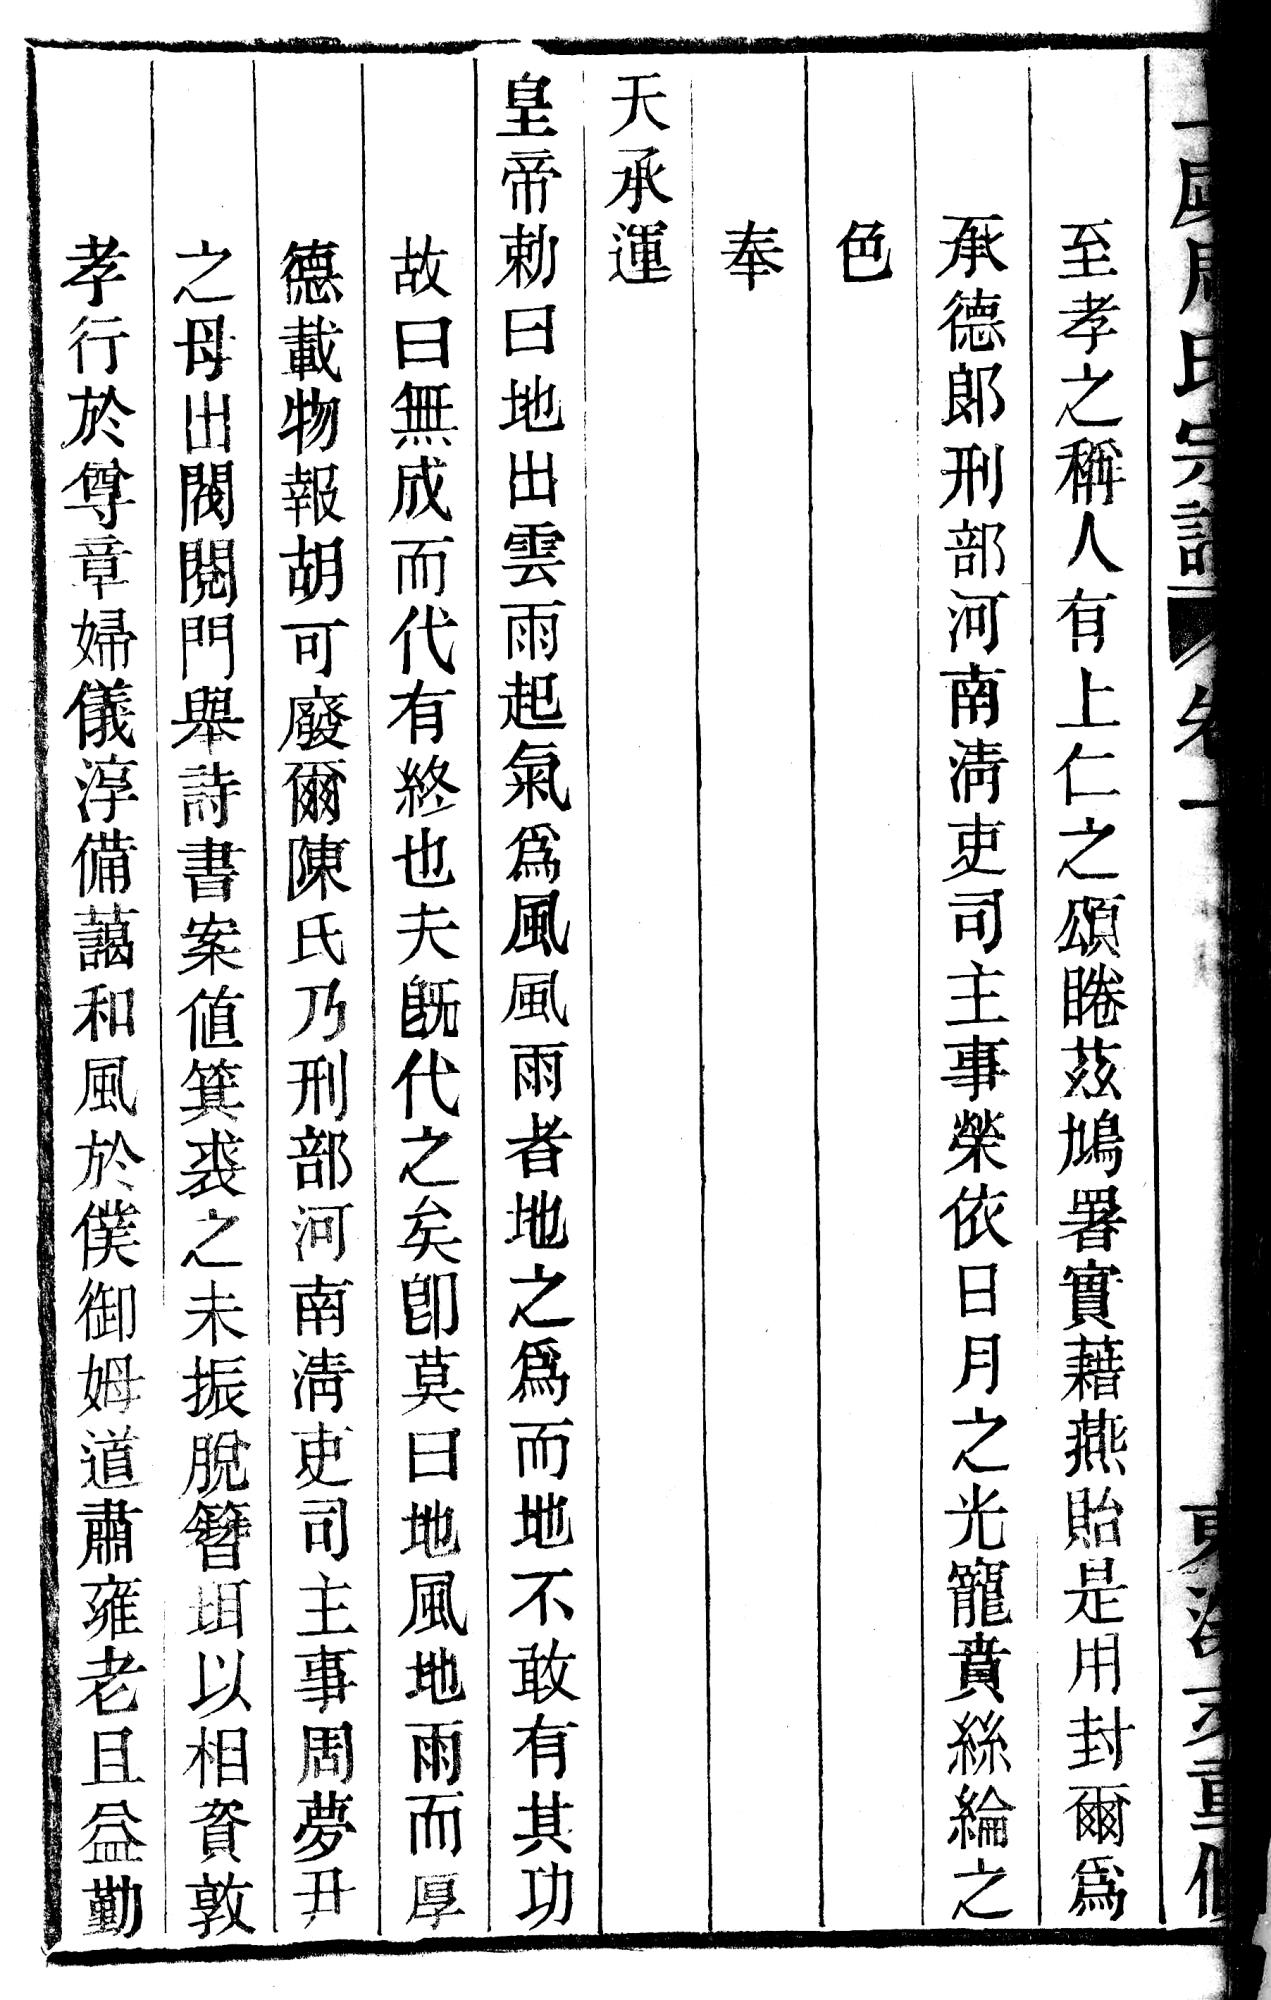 周氏宗譜 卷一
至孝之稱人有上仁之頌睠茲鳩署實藉燕貽是用封爾爲
承德郞刑部河南淸吏司主事榮依日月之光寵賁絲綸之
色
奉
天承運
皇帝勅曰地出雲雨起氣爲風風雨者地之爲而地不敢有其功
故曰無成而代有終也夫旣代之矣卽莫曰地風地雨而厚
德載物報胡可廢爾陳氏乃刑部河南淸吏司主事周夢尹
之母出閥閱門舉詩書案値箕裘之未振脫簪珥以相資敦
孝行於尊章婦儀淳備藹和風於僕御姆道肅雍老且益勤